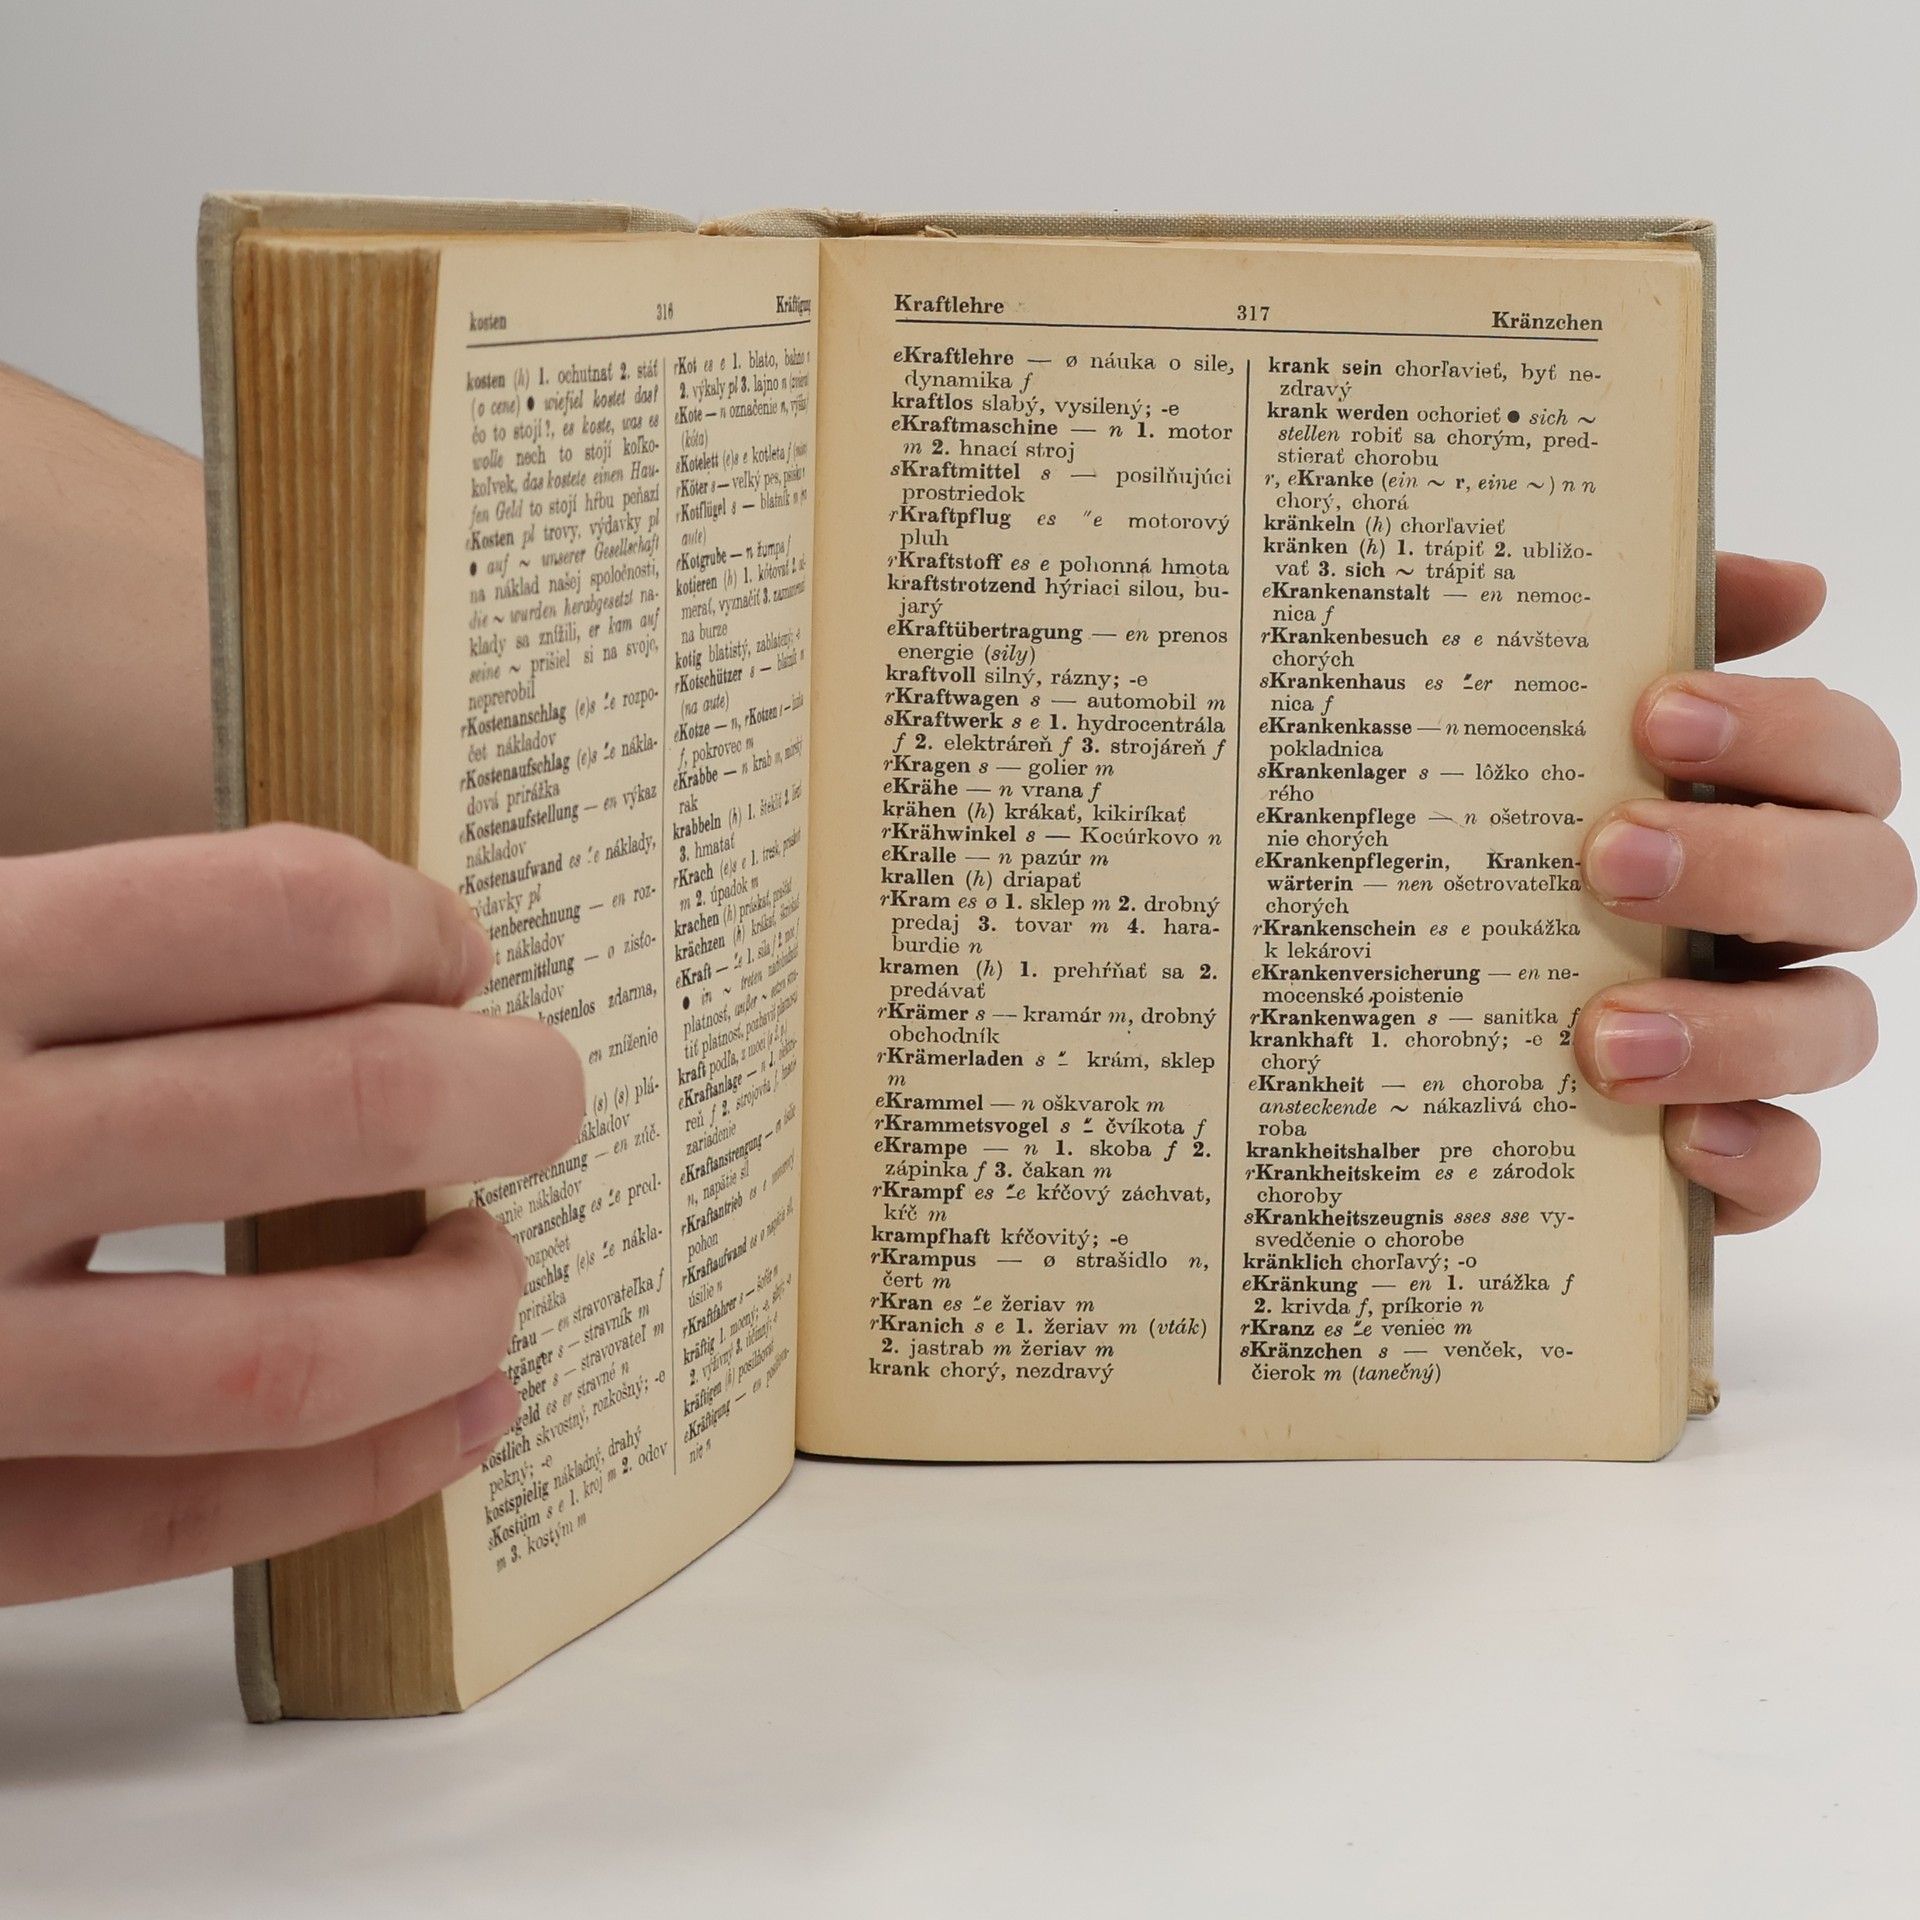 kosten 316 Kräftigung
kosten (h) 1. ochutnať 2. stáť
(o cene) ● wiefiel kostet das?
čo to stojí?, es koste, was es
wolle nech to stojí koľko-
koľvek, das kostete einen Hau-
fen Geld to stojí hŕbu peňazí
eKosten pl trovy, výdavky pl
● auf ~ unserer Gesellschaft
na náklad našej spoločnosti,
die ~ wurden herabgesetzt ná-
klady sa znížili, er kam auf
seine ~ prišiel si na svoje,
neprerobil
rKostenanschlag (e)s ⸚e rozpo-
čet nákladov
rKostenaufschlag (e)s ⸚e nákla-
dová prirážka
eKostenaufstellung — en výkaz
nákladov
rKostenaufwand es ⸚e náklady,
výdavky pl
tenberechnung — en roz-
t nákladov
stenermittlung — o zisťo-
nie nákladov
kostenlos zdarma,
en zníženie
(s) (s) plá-
ákladov
Kostenverrechnung — en zúč-
vanie nákladov
nvoranschlag es ⸚e pred-
rozpočet
zuschlag (e)s ⸚e nákla-
prirážka
frau — en stravovateľka f
tgänger s — stravník m
geber s — stravovateľ m
tgeld es er stravné n
köstlich skvostný, rozkošný; -e
pekný; -e
kostspielig nákladný, drahý
sKostüm s e 1. kroj m 2. odev
m 3. kostým m
rKot es e 1. blato, bahno n
2. výkaly pl 3. lajno n
eKote — n označenie n, výška
(kóta)
sKotelett (e)s e kotleta f
rKöter s — veľký pes,
rKotflügel s — blatník m
aute)
eKotgrube — n žumpa f
kotieren (h) 1. kótovať 2.
merať, vyznačiť 3.
na burze
kotig blatistý, zablatený; -e
rKotschützer s — blatník m
(na aute)
eKotze — n, rKotzen s —
f, pokrovec m
eKrabbe — n krab m, morský
rak
krabbeln (h) 1. štekliť 2. liezť
3. hmatať
rKrach (e)s e 1. tresk,
m 2. úpadok m
krachen (h) prásкať,
krächzen (h) krákať,
eKraft — ⸚e 1. sila f 2. moc f
● in ~ treten
platnosť, außer ~ setzen
tiť platnosť,
kraft podľa, z moci
eKraftanlage — n 1.
reň f 2. strojovňa f,
zariadenie
eKraftanstrengung — en úsilie
n, napätie síl
rKraftantrieb es e motorový
pohon
rKraftaufwand es o napätie síl,
úsilie n
rKraftfahrer s — šofér m
kräftig 1. mocný; -e,
2. výživný 3. účinný; -e
kräftigen (h) posilňovať
eKräftigung — en
nie n
Kraftlehre 317 Kränzchen
eKraftlehre — ø náuka o sile,
dynamika f
kraftlos slabý, vysilený; -e
eKraftmaschine — n 1. motor
m 2. hnací stroj
sKraftmittel s — posilňujúci
prostriedok
rKraftpflug es ⸚e motorový
pluh
rKraftstoff es e pohonná hmota
kraftstrotzend hýriaci silou, bu-
jarý
eKraftübertragung — en prenos
energie (sily)
kraftvoll silný, rázny; -e
rKraftwagen s — automobil m
sKraftwerk s e 1. hydrocentrála
f 2. elektráreň f 3. strojáreň f
rKragen s — golier m
eKrähe — n vrana f
krähen (h) krákať, kikiríkať
rKrähwinkel s — Kocúrkovo n
eKralle — n pazúr m
krallen (h) driapať
rKram es ø 1. sklep m 2. drobný
predaj 3. tovar m 4. hara-
burdie n
kramen (h) 1. prehŕňať sa 2.
predávať
rKrämer s — kramár m, drobný
obchodník
rKrämerladen s ⸚ krám, sklep
m
eKrammel — n oškvarok m
rKrammetsvogel s ⸚ čvíkota f
eKrampe — n 1. skoba f 2.
zápinka f 3. čakan m
rKrampf es ⸚e kŕčový záchvat,
kŕč m
krampfhaft kŕčovitý; -e
rKrampus — ø strašidlo n,
čert m
rKran es ⸚e žeriav m
rKranich s e 1. žeriav m (vták)
2. jastrab m žeriav m
krank chorý, nezdravý
krank sein chorľavieť, byť ne-
zdravý
krank werden ochorieť ● sich ~
stellen robiť sa chorým, pred-
stierať chorobu
r, eKranke (ein ~ r, eine ~) n n
chorý, chorá
kränkeln (h) chorľavieť
kränken (h) 1. trápiť 2. ubližo-
vať 3. sich ~ trápiť sa
eKrankenanstalt — en nemoc-
nica f
rKrankenbesuch es e návšteva
chorých
sKrankenhaus es ⸚er nemoc-
nica f
eKrankenkasse — n nemocenská
pokladnica
sKrankenlager s — lôžko cho-
rého
eKrankenpflege — n ošetrova-
nie chorých
eKrankenpflegerin, Kranken-
wärterin — nen ošetrovateľka
chorých
rKrankenschein es e poukážka
k lekárovi
eKrankenversicherung — en ne-
mocenské poistenie
rKrankenwagen s — sanitka f
krankhaft 1. chorobný; -e 2.
chorý
eKrankheit — en choroba f;
ansteckende ~ nákazlivá cho-
roba
krankheitshalber pre chorobu
rKrankheitskeim es e zárodok
choroby
sKrankheitszeugnis sses sse vy-
svedčenie o chorobe
kränklich chorľavý; -o
eKränkung — en 1. urážka f
2. krivda f, príkorie n
rKranz es ⸚e veniec m
sKränzchen s — venček, ve-
čierok m (tanečný)